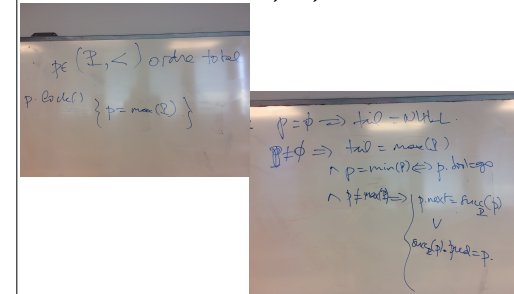 p ∈ (P, <) ordre total
p.lock() { p = max(P) }
P = ϕ ⟹ tail = NULL.
P ≠ ϕ ⟹ tail = max(P)
∧ p = min(P) ⟺ p. = go
∧ p ≠ max(P) ⟹ p.next = succ_P(p)
∨
succ_P(p).pred = p.